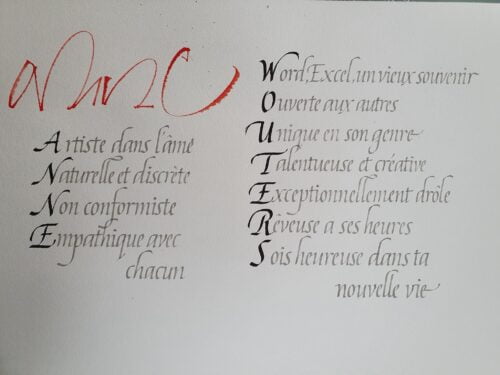 anne
Artiste dans l'âme
Naturelle et discrète
Non conformiste
Empathique avec
chacun
Word, Excel, un vieux souvenir
Ouverte aux autres
Unique en son genre
Talentueuse et créative
Exceptionnellement drôle
Rêveuse a ses heures
Sois heureuse dans ta
nouvelle vie